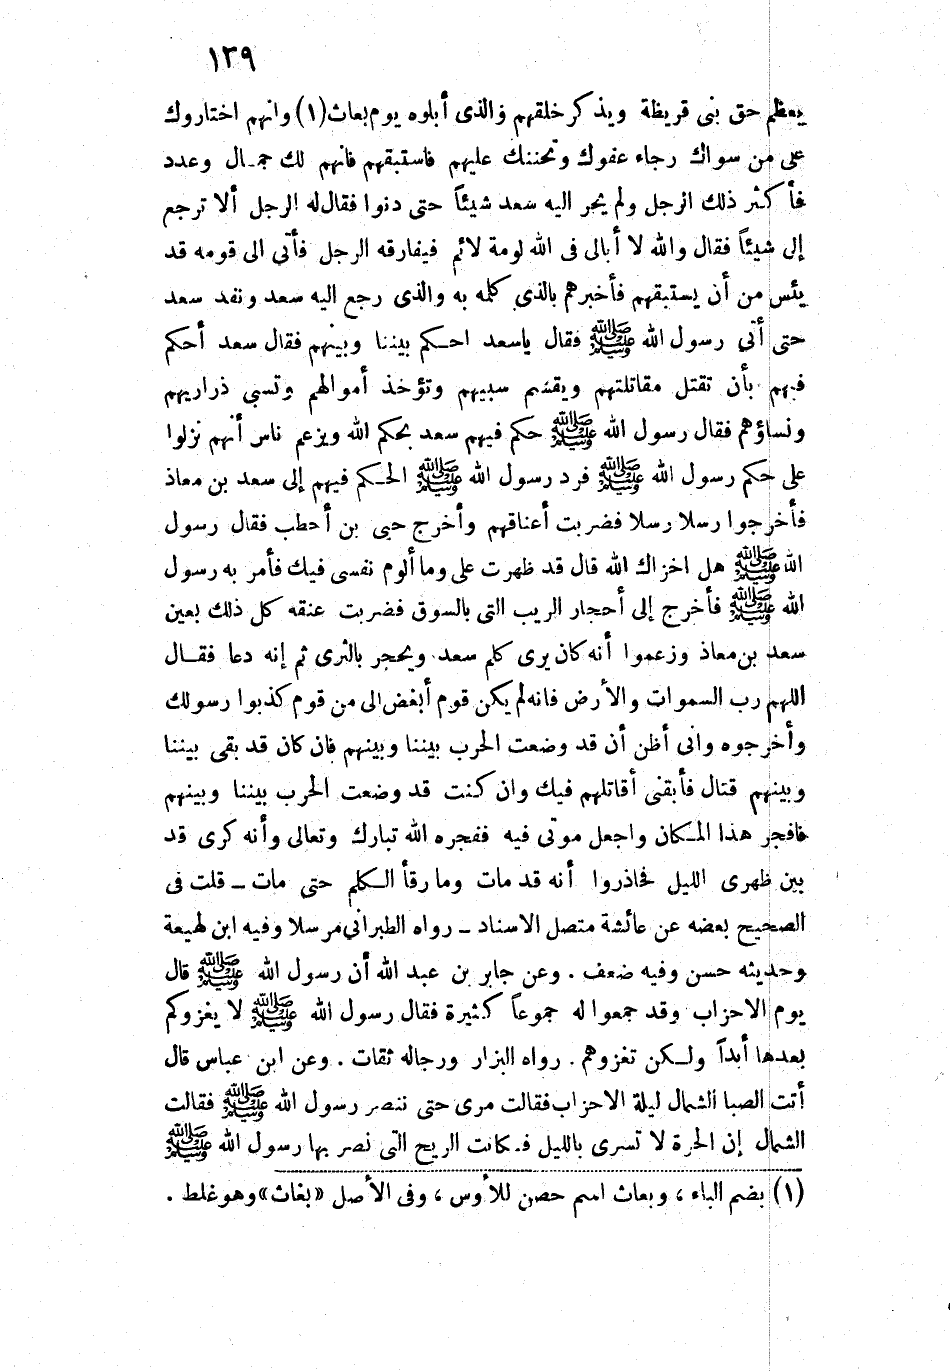 ١٣٩
يعظم حق بنى قريظة ويذكر خلقهم والذى أبلوه يوم بعاث (١) وانهم اختاروك
على من سواك رجاء عفوك وتحننك عليهم فاستبقهم فانهم لك جمال وعدد
فأكثر ذلك الرجل ولم يحر اليه سعد شيئاً حتى دنوا فقال له الرجل ألا ترجع
إلى شيئاً فقال والله لا أبالى فى الله لومة لائم فيفارقه الرجل فأتى الى قومه قد
يئس من أن يستبقهم فأخبرهم بالذي كلمه به والذى رجع اليه سعد ونفد سعد
حتى أتى رسول الله ﷺ فقال ياسعد احكم بيننا وبينهم فقال سعد أحكم
فيهم بأن تقتل مقاتلتهم ويقسم سبيهم وتؤخذ أموالهم وتسبى ذراريهم
ونساؤهم فقال رسول الله ﷺ حكم فيهم سعد بحكم الله ويزعم ناس أنهم نزلوا
على حكم رسول الله ﷺ فرد رسول الله ﷺ الحكم فيهم إلى سعد بن معاذ
فأخرجوا رسلا رسلا فضربت أعناقهم وأخرج حيى بن أحطب فقال رسول
الله ﷺ هل اخزاك الله قال قد ظهرت على وما ألوم نفسى فيك فأمر به رسول
الله ﷺ فأخرج إلى أحجار الريب التى بالسوق فضربت عنقه كل ذلك بعين
سعد بن معاذ وزعموا أنه كان يرى كلم سعد ويحجر بالثرى ثم إنه دعا فقال
اللهم رب السموات والأرض فانه لم يكن قوم أبغض الى من قوم كذبوا رسولك
وأخرجوه وانى أظن أن قد وضعت الحرب بيننا وبينهم فان كان قد بقى بيننا
وبينهم قتال فأبقنى أقاتلهم فيك وان كنت قد وضعت الحرب بيننا وبينهم
فافجر هذا المكان واجعل موتى فيه ففجره الله تبارك وتعالى وأنه كرى قد
بين ظهرى الليل فحاذروا أنه قد مات وما رقأ الكلم حتى مات ـ قلت فى
الصحيح بعضه عن عائشة متصل الاسناد ـ رواه الطبراني مرسلا وفيه ابن لهيعة
وحديثه حسن وفيه ضعف . وعن جابر بن عبد الله أن رسول الله ﷺ قال
يوم الاحزاب وقد جمعوا له جموعاً كثيرة فقال رسول الله ﷺ لا يغزوكم
بعدها أبداً ولكن تغزوهم . رواه البزار ورجاله ثقات . وعن ابن عباس قال
أتت الصبا الشمال ليلة الاحزاب فقالت مرى حتى ننصر رسول الله ﷺ فقالت
الشمال إن الحرة لا تسرى بالليل فكانت الريح التى نصر بها رسول الله ﷺ
(١) بضم الباء ، وبعاث اسم حصن للأوس ، وفى الأصل «بغاث» وهو غلط .